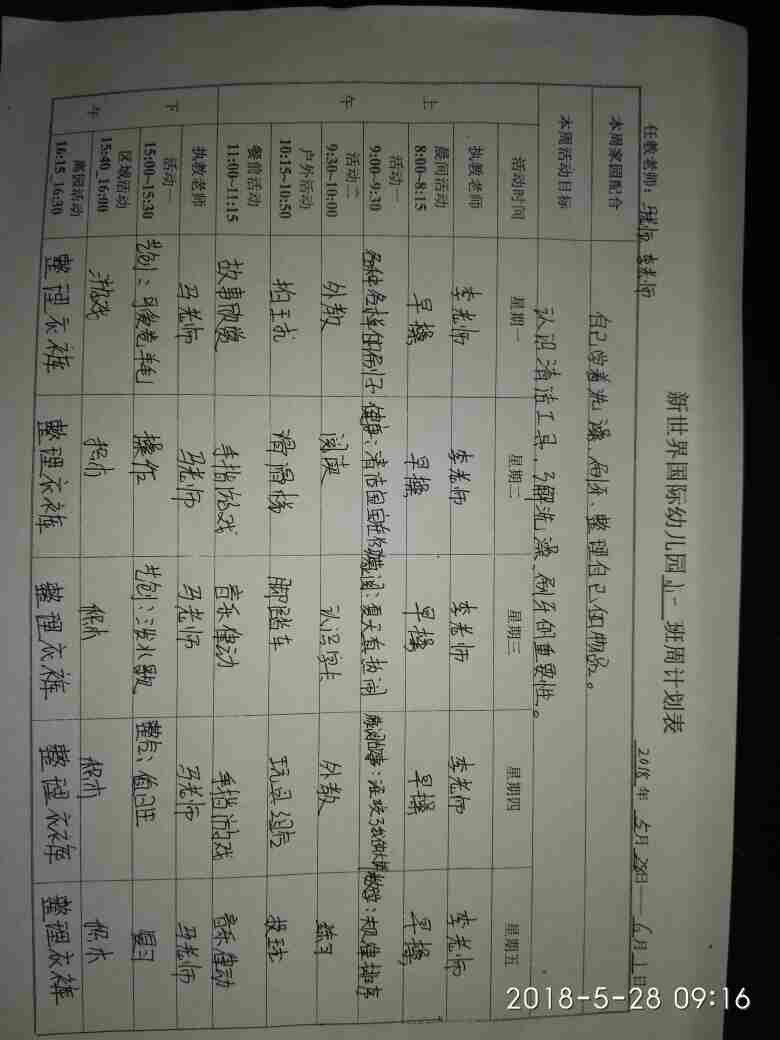 新世界国际幼儿园小一班周计划表
任教老师：马老师 李老师 2018年 5月28日——6月1日
本周家园配合 自己学着洗澡、刷牙、整理自己的物品。
本周活动目标 认识清洁工具，了解洗澡、刷牙的重要性。
活动时间 星期一 星期二 星期三 星期四 星期五
上午
执教老师 李老师 李老师 李老师 李老师 李老师
晨间活动 8:00~8:15 早操 早操 早操 早操 早操
活动一 9:00~9:30 各种各样的房子 健康：清洁宝宝 夏天真热闹 规律排序
活动二 9:30~10:00 外教 阅读 认识字卡 外教 练习
户外活动 10:15~10:50 拍王扩 滑滑梯 脚踏车 玩具组合 投球
餐前活动 11:00~11:15 故事欣赏 手指游戏 音乐律动 手指游戏 音乐律动
下午
执教老师 马老师 马老师 马老师 马老师 马老师
活动一 15:00~15:30 艺创：可爱卷羊毛 操作 艺创： 整合：值日生 复习
区域活动 15:40_16:00 游戏 积木 积木 积木 积木
离园活动 16:15_16:30 整理衣裤 整理衣裤 整理衣裤 整理衣裤 整理衣裤
2018-5-28 09:16